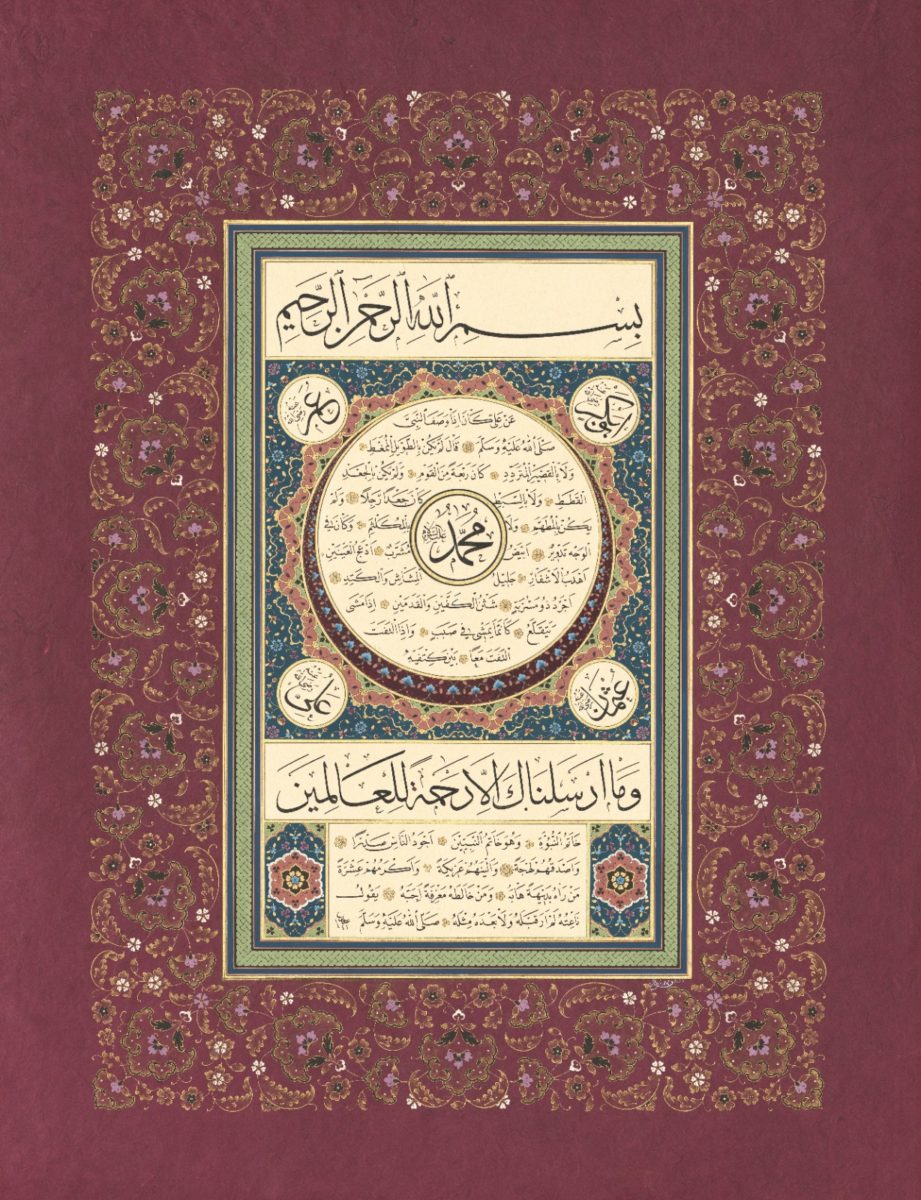 بسم الله الرحمن الرحيم
ابوبكر رضي الله عنه
عمر رضي الله عنه
عن علي كان اذا وصف النبي
صلى الله عليه وسلم قال لم يكن بالطويل الممغط
ولا بالقصير المتردد كان ربعة من القوم ولم يكن بالجعد
القطط ولا بالسبط كان جعدا رجلا ولم
يكن بالمطهم ولا بالمكلثم وكان في
محمد عليه السلام
الوجه تدوير ابيض مشرب ادعج العينين
اهدب الاشفار جليل المشاش والكتد
اجرد ذو مسربة شثن الكفين والقدمين اذا مشى
يتقلع كانما يمشي في صبب واذا التفت
التفت معا بين كتفيه
عثمان رضي الله عنه
علي رضي الله عنه
وما ارسلناك الا رحمة للعالمين
خاتم النبوة وهو خاتم النبيين اجود الناس صدرا
واصدقهم لهجة والينهم عريكة واكرمهم عشرة
من راه بديهة هابه ومن خالطه معرفة احبه يقول
ناعته لم ار قبله ولا بعده مثله صلى الله عليه وسلم